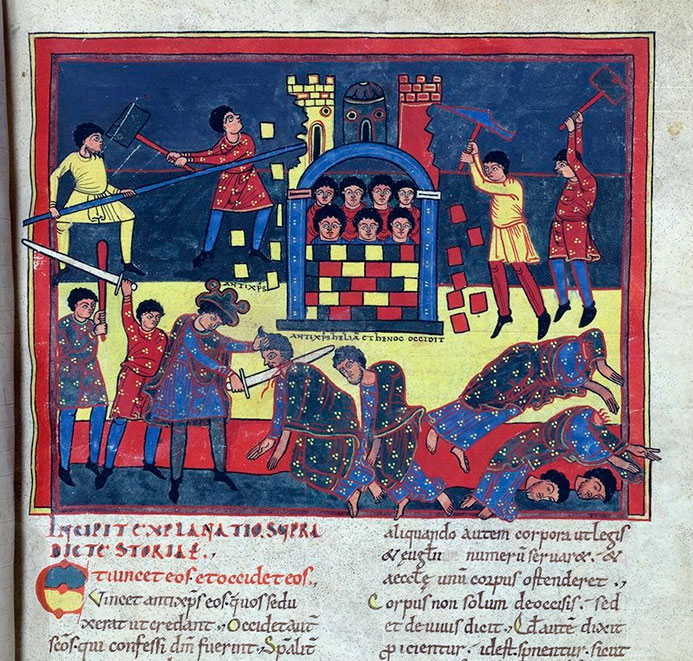 ANTIXPS
ANTIXPS HELIA ET HENOC OCCIDIT
INCIPIT EXPLANATIO SUPRA
DICTE STORIAE.,
Et uincet eos. et occidet eos.,
Vincet antixps eos. quos sedu
xerat ut credant., Occidet aut
scos. qui confessi dm fuerint. Spalit
aliquando autem corpora ut legis
& numerū seruaret. &
aeccle unū corpus ostenderet.,
Corpus non solum de occisis. sed
et de uiuis dicit., Qd aute dixit
picientur. idest. spnentur. sicut